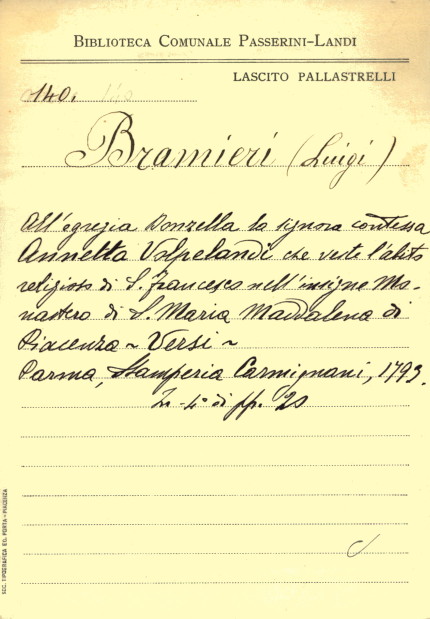 BIBLIOTECA COMUNALE PASSERINI-LANDI
LASCITO PALLASTRELLI
140.
Bramieri (Luigi)
All'egregia Donzella la signora contessa
Annetta Volpelandi che veste l'abito
religioso di S. Francesco nell'insigne Mo-
nastero di S. Maria Maddalena di
Piacenza ~ Versi ~
Parma, Stamperia Carmignani, 1793.
In-4° di pp. 20
SOC. TIPOGRAFICA ED. PORTA - PIACENZA